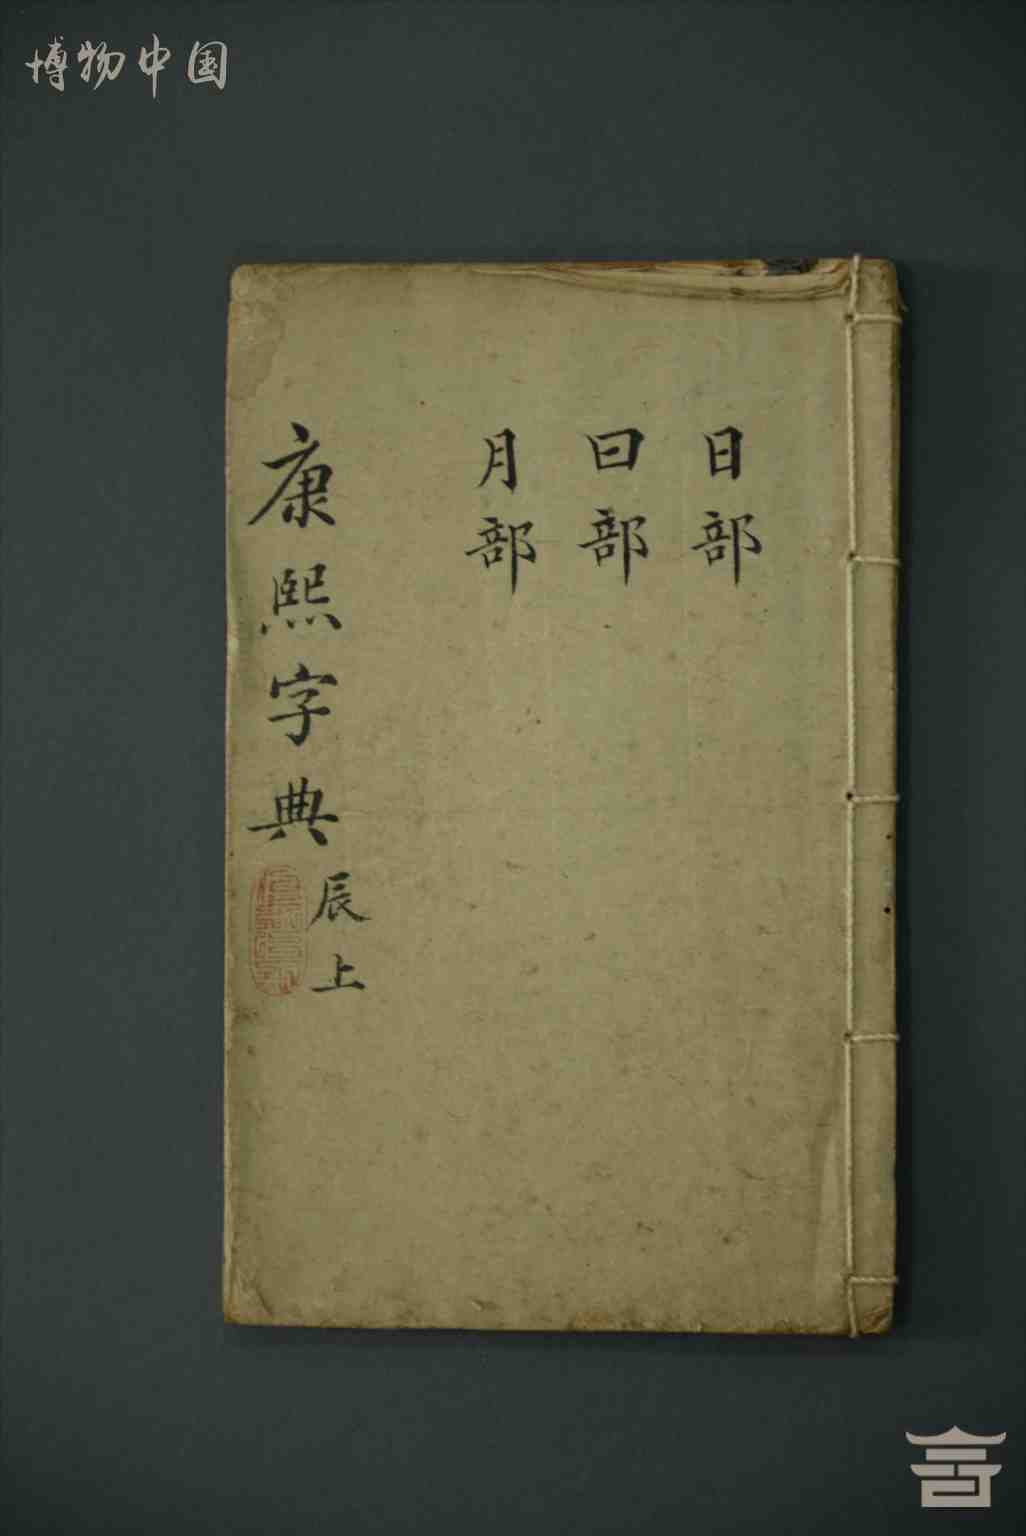 博物中国
日部
曰部
月部
康熙字典
辰上